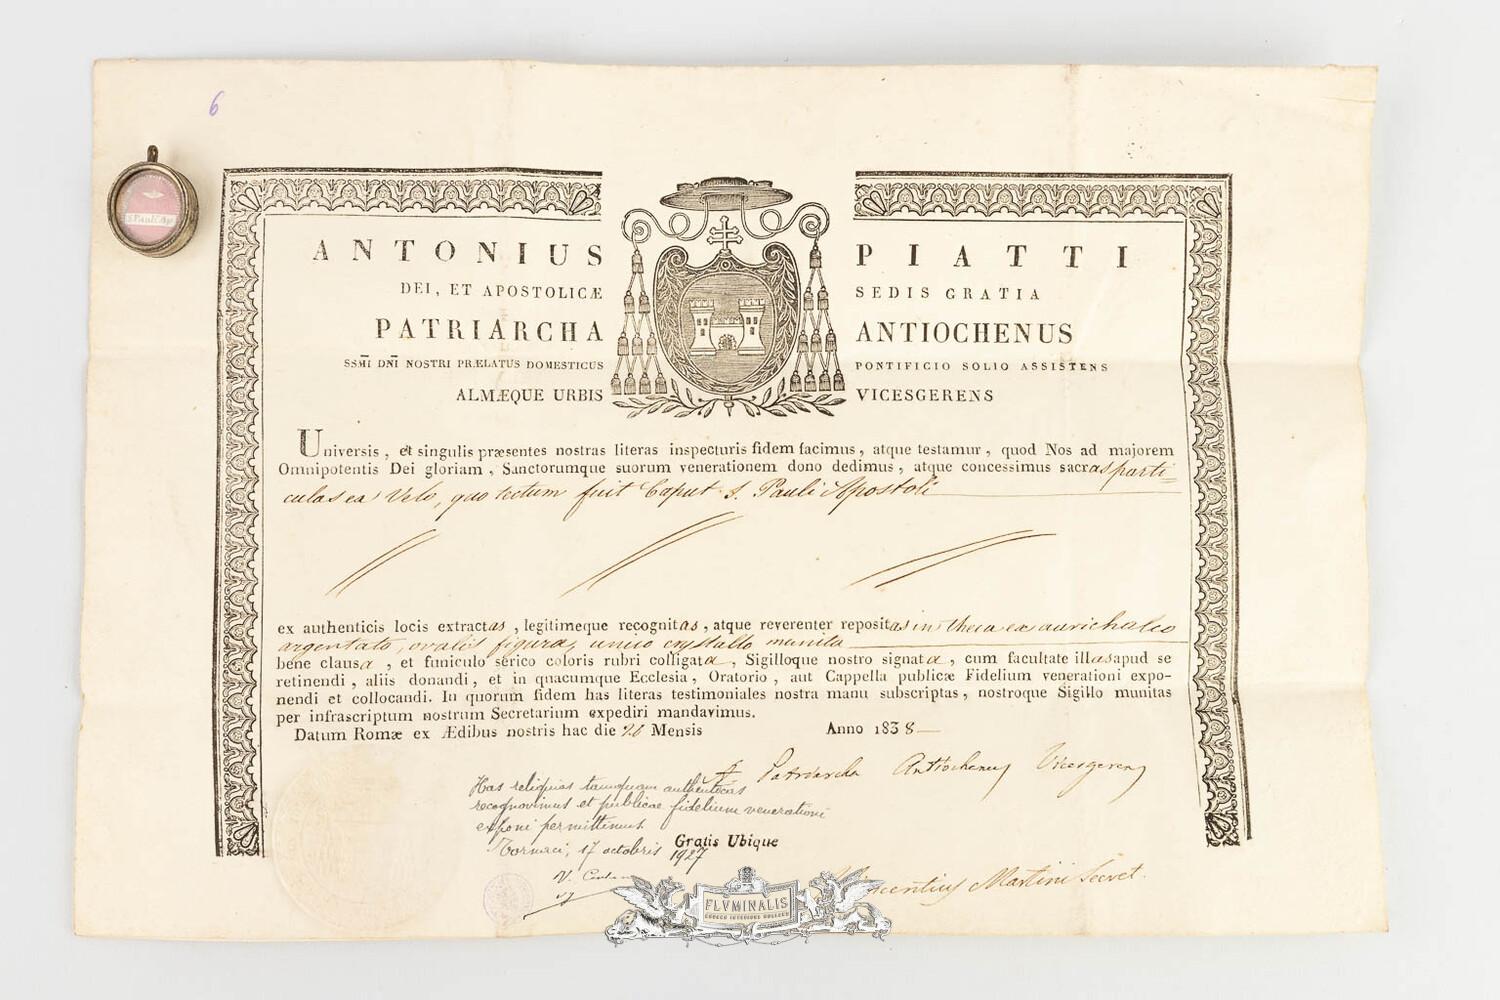 6
S. Pauli Ap
ANTONIUS PIATTI
DEI, ET APOSTOLICÆ SEDIS GRATIA
PATRIARCHA ANTIOCHENUS
SSM̄I DN̄I NOSTRI PRÆLATUS DOMESTICUS PONTIFICIO SOLIO ASSISTENS
ALMÆQUE URBIS VICESGERENS
Universis, et singulis præsentes nostras literas inspecturis fidem facimus, atque testamur, quod Nos ad majorem
Omnipotentis Dei gloriam, Sanctorumque suorum venerationem dono dedimus, atque concessimus sacras parti=
culas ex Velo, quo tectum fuit Caput S. Pauli Apostoli
ex authenticis locis extractas, legitimeque recognitas, atque reverenter repositas in theca ex aurichalco
argentato, ovalis figuræ, unico crystallo munita
bene clausa, et funiculo serico coloris rubri colligata, Sigilloque nostro signata, cum facultate illas apud se
retinendi, aliis donandi, et in quacumque Ecclesia, Oratorio, aut Cappella publicæ Fidelium venerationi expo-
nendi et collocandi. In quorum fidem has literas testimoniales nostra manu subscriptas, nostroque Sigillo munitas
per infrascriptum nostrum Secretarium expediri mandavimus.
Datum Romæ ex Ædibus nostris hac die 26 Mensis Anno 1838
A Patriarcha Antiochenus Vicesgerens
Has reliquias tamquam authenticas
recognovimus et publicae fidelium venerationi
exponi permittimus.
Tornaci, 17 octobris 1927
Gratis Ubique
Vincentius Martini Secret.
FLVMINALIS